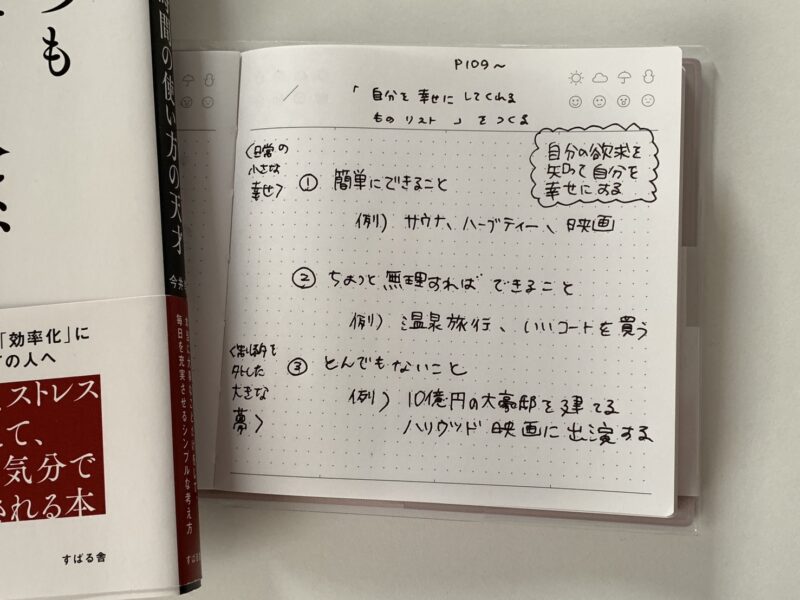 も
時間の使い方の天才
今井
「効率化」に
の人へ
ストレス
て、
気分で
れる本
毎日を充実させるシンプルな考え方
すばる舎
すばる舎
P109〜
「自分を幸せにしてくれる
ものリスト」をつくる
自分の欲求を
知って自分を
幸せにする
〈日常の
小さな
幸せ〉
① 簡単にできること
例）サウナ、ハーブティー、映画
② ちょっと無理すればできること
例）温泉旅行、いいコートを買う
〈制限を
外した
大きな
夢〉
③ とんでもないこと
例）10億円の大豪邸を建てる
ハリウッド映画に出演する